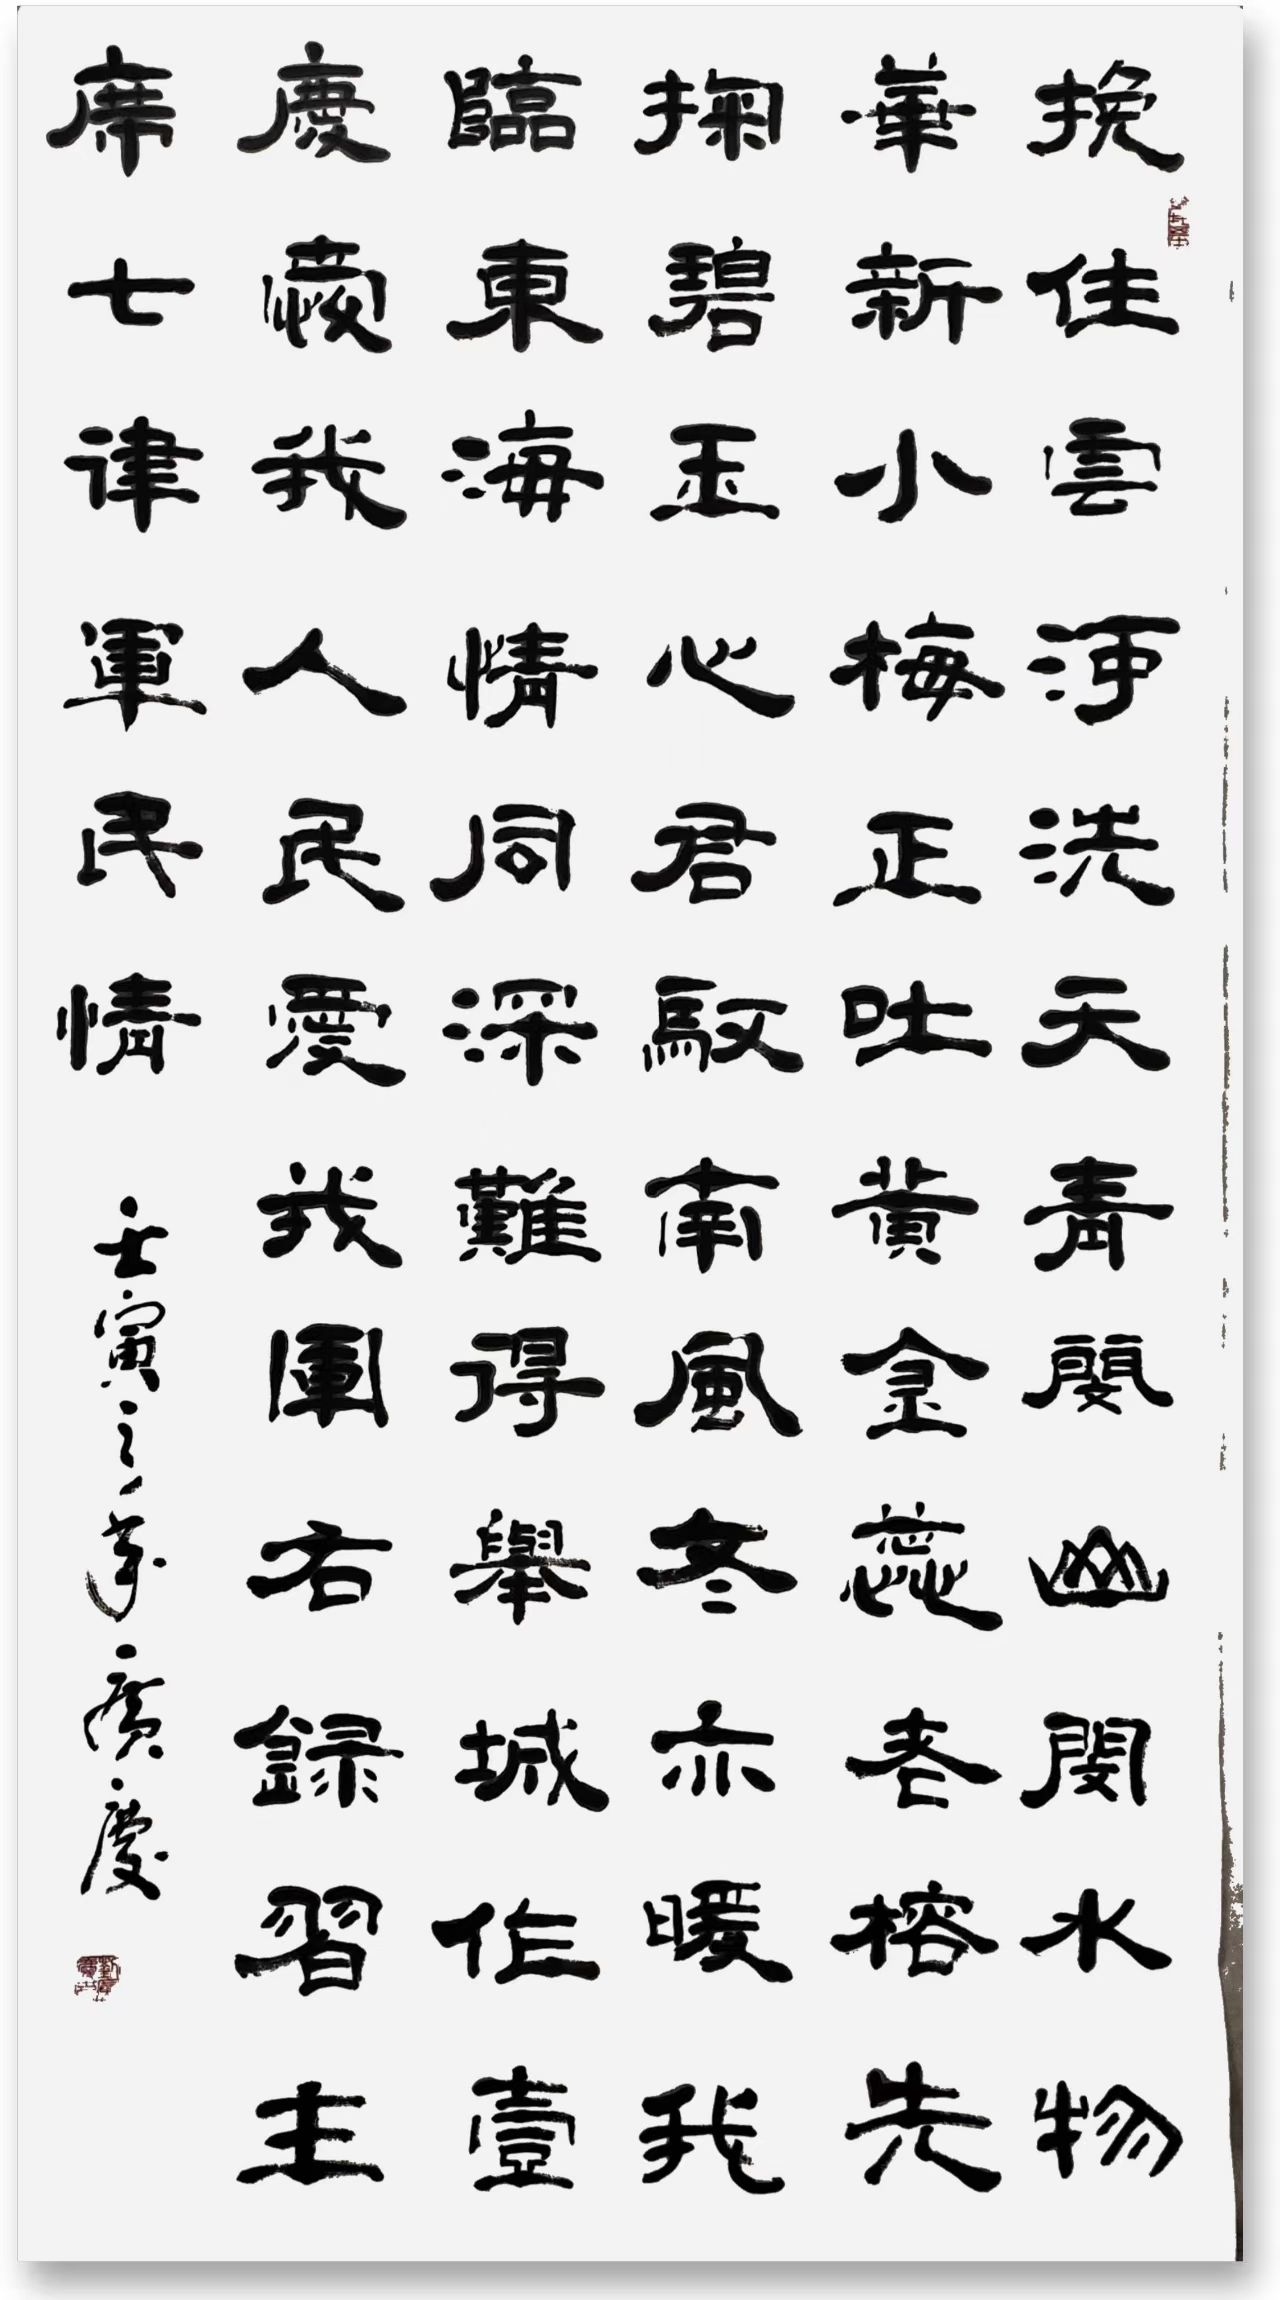 挽住雲河洗天青閩山閩水物
華新小梅正吐黃金蕊老榕先
掬碧玉心君馭南風冬亦暖我
臨東海情同深難得舉城作壹
慶愛我人民愛我軍右録習主
席七律軍民情 壬寅之年廣慶